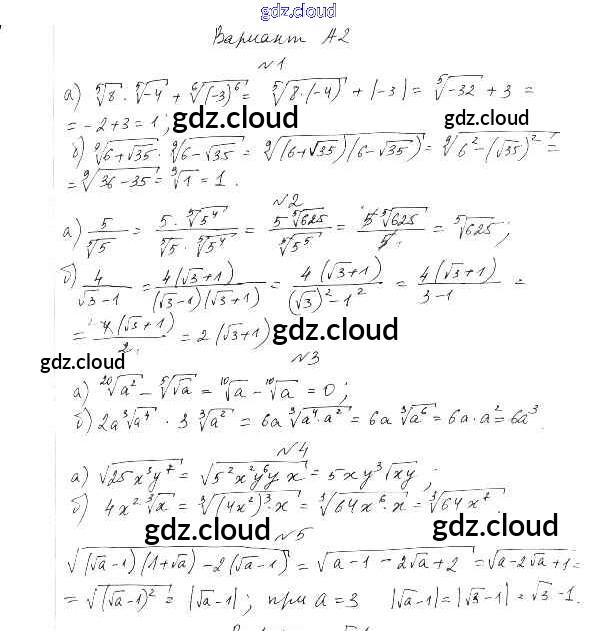 gdz.cloud
Вариант А2
№1
а) ⁵√8 · ⁵√-4 + ⁶√(-3)⁶ = ⁵√(8·(-4)) + |-3| = ⁵√-32 + 3 =
= -2+3 = 1; gdz.cloud gdz.cloud
б) ⁹√(6+√35) · ⁹√(6-√35) = ⁹√((6+√35)(6-√35)) = ⁹√(6²-(√35)²) =
= ⁹√(36-35) = ⁹√1 = 1.
№2
а) 5/⁵√5 = (5·⁵√5⁴)/(⁵√5·⁵√5⁴) = (5 ⁵√625)/⁵√5⁵ = (5 ⁵√625)/5 = ⁵√625;
б) 4/(√3-1) = 4(√3+1)/((√3-1)(√3+1)) = 4(√3+1)/((√3)²-1²) = 4(√3+1)/(3-1) =
= 4(√3+1)/2 = 2(√3+1) gdz.cloud
gdz.cloud
№3
а) ²⁰√a² - ⁵√√a = ¹⁰√a - ¹⁰√a = 0;
б) 2a ³√a⁴ · 3 ³√a² = 6a ³√(a⁴·a²) = 6a ³√a⁶ = 6a·a² = 6a³.
№4
а) √(25x³y⁷) = √(5²x²y⁶y x) = 5xy³√xy;
б) 4x²·³√x = ³√((4x²)³·x) = ³√(64x⁶·x) = ³√(64x⁷).
gdz.cloud gdz.cloud
№5
√((√a-1)(1+√a)-2(√a-1)) = √(a-1-2√a+2) = √(a-2√a+1) =
= √((√a-1)²) = |√a-1|; при a=3 |√a-1| = |√3-1| = √3-1.